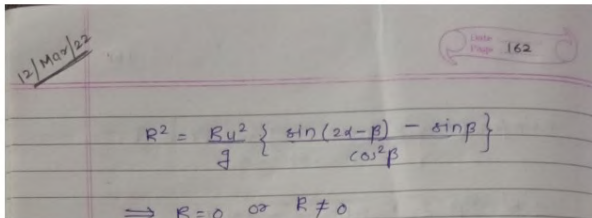 12/Mar/22
Date
Page 162
R² = Ru²/g { sin(2α-β) - sinβ / cos²β }
⟹ R = 0 or R ≠ 0